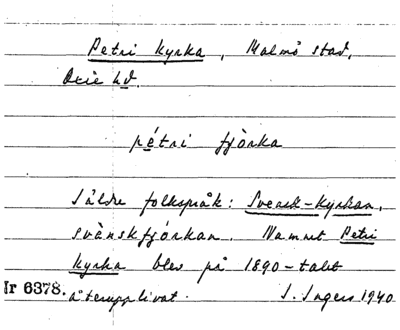 Petri kyrka, Malmö stad,
Oxie hd.
pétri fjòrka
I äldre folkspråk: Svensk-kyrkan,
svànskfjórkan. Namnet Petri
kyrka blev på 1890-talet
Nr 6378. återupplivat. I. Ingers 1940